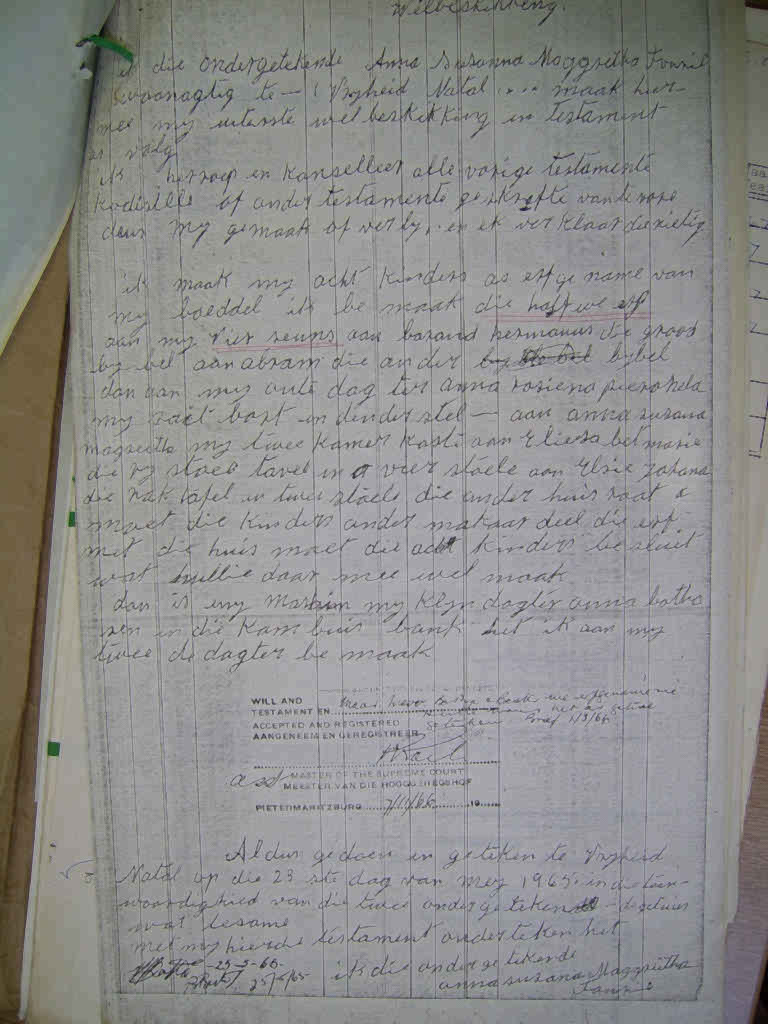 Wilbeskikking.
ik die ondergetekende Anna Susanna Maggrietha
woonagtig te — Vryheid Natal .... maak hier
mee my uiterste wilbeskikking en testament
as volg
ik herroep en kanselleer alle vorige testamente
kodisille of ander testamente geskrefte van de
deur my gemaak of verly. en ek verklaar
ik maak my acht kinders as erfgename van
my boeddel ik be maak die halfwe erf
aan my vier seuns aan barand hermanus die groot
bybel aan abram die ander bybel
dan aan my oute dag ter anna rosiena
my bort en stel — aan anna susana
magrietha my twee kamer kaste aan Eliesa bet marie
die stoeb tavel en vier stoele aan Elsie johana
die tafel en twee stoele die ander huis raat
moet die kinders onder makaar deel die erf
met die huis moet die acht kinders besluit
wat hullie daar mee wel maak
dan is my my klyn dagter anna botha
en die kombuis bank het ik aan my
twee de dagter be maak
WILL AND
TESTAMENT EN
ACCEPTED AND REGISTERED
AANGENEEM EN GEREGISTREER
1/3/66
asst MASTER OF THE SUPREME COURT
MEESTER VAN DIE HOOGGEREGSHOF
PIETERMARITZBURG 19
Aldus gedoen en geteken te Vryheid
Natal op die 23 ste dag van Mey 1965. in die teen-
woordighied van die twee ondergetekende - getuies
wat tesame
met my hierdie testament onderteken het
ik die ondergetekende
25/5/65
anna susana Maggrietha